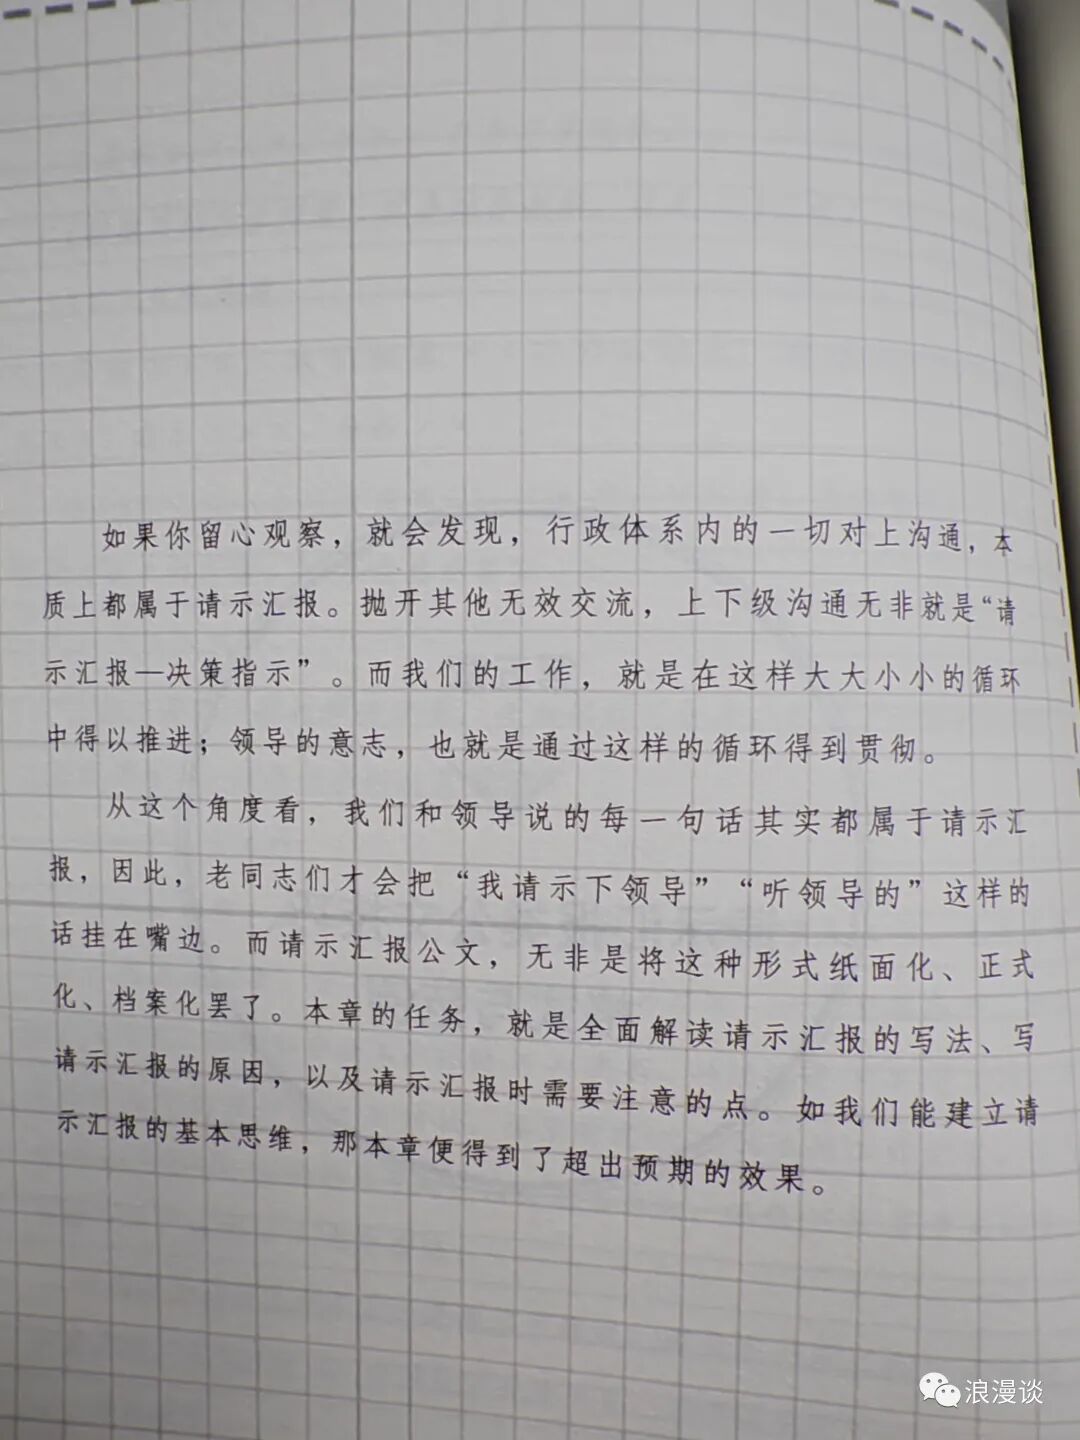 如果你留心观察，就会发现，行政体系内的一切对上沟通，本
质上都属于请示汇报。抛开其他无效交流，上下级沟通无非就是“请
示汇报—决策指示”。而我们的工作，就是在这样大大小小的循环
中得以推进；领导的意志，也就是通过这样的循环得到贯彻。
从这个角度看，我们和领导说的每一句话其实都属于请示汇
报，因此，老同志们才会把“我请示下领导”“听领导的”这样的
话挂在嘴边。而请示汇报公文，无非是将这种形式纸面化、正式
化、档案化罢了。本章的任务，就是全面解读请示汇报的写法、写
请示汇报的原因，以及请示汇报时需要注意的点。如我们能建立请
示汇报的基本思维，那本章便得到了超出预期的效果。
浪漫谈